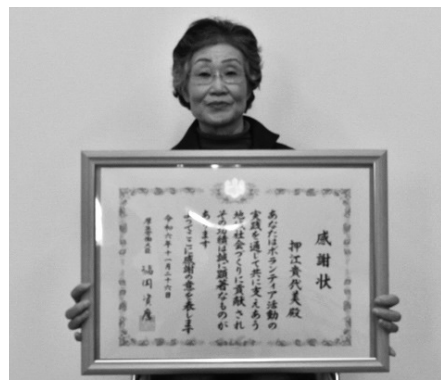 感謝状
押江貴代美殿
あなたはボランティア活動の
実践を通して共に支えあう
地域社会づくりに貢献され
その功績は誠に顕著なものが
あります
よってここに感謝の意を表します
令和六年十一月二十六日
厚生労働大臣
福岡資麿